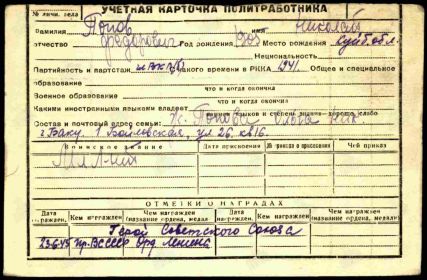 УЧЕТНАЯ КАРТОЧКА ПОЛИТРАБОТНИКА
№ личн. дела
Фамилия Попов имя Николай
отчество Федорович Год рождения 1905 Место рождения Куйб. обл.
Национальность
Партийность и партстаж ВКП(б) какого времени в РККА 1941. Общее и специальное
образование
что и когда окончил
Военное образование
что и когда окончил
Какими иностранными языками владеет
языков и степень знания—хорошо, слабо
Состав и почтовый адрес семьи: Попова Ольга Ник
г. Баку, 1 Баиловская, ул 26. кв 16.
Воинское звание Дата присвоения № приказа о присвоении Чей приказ
ОТМЕТКИ О НАГРАДАХ
Дата награжден. Кем награжден Чем награжден (название ордена, медали) Дата награжден. Кем награжден Чем награжден (название ордена, медали)
Герой Советского Союза
Пр. ВС СССР Орд Ленина